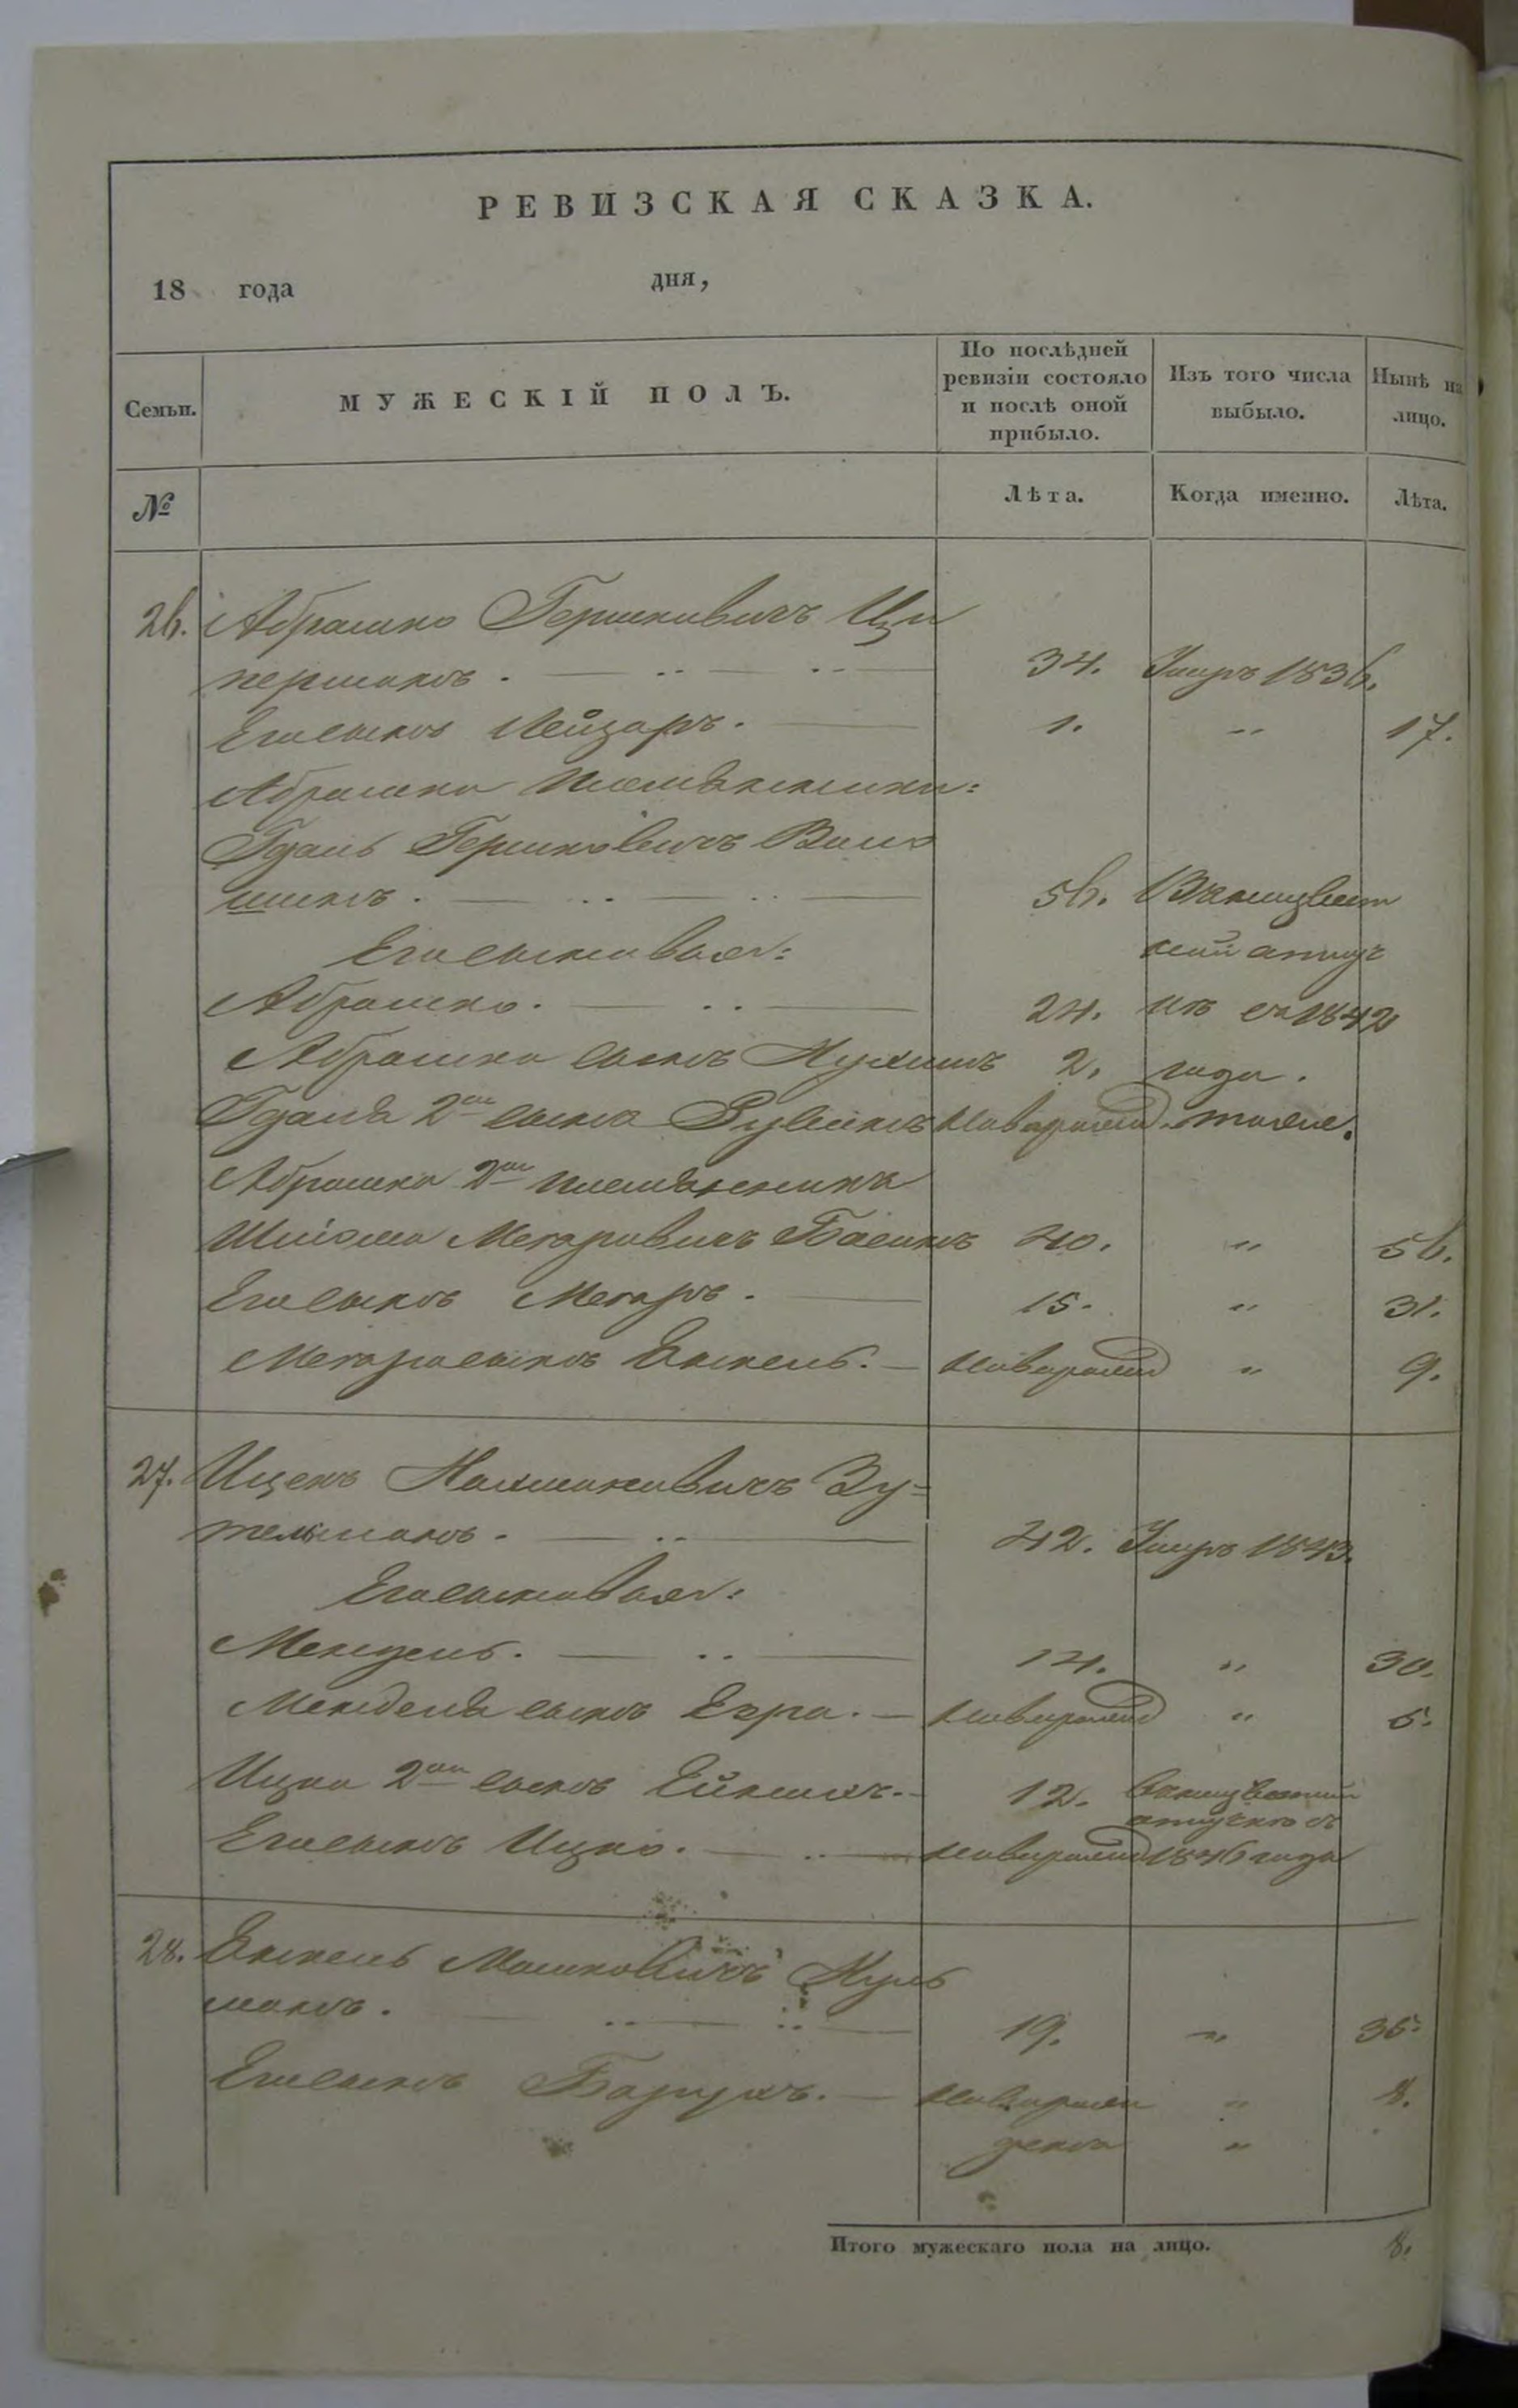 РЕВИЗСКАЯ СКАЗКА.
18 года дня,
Семьи. МУЖЕСКІЙ ПОЛЪ. По послѣдней ревизіи состояло и послѣ оной прибыло. Изъ того числа выбыло. Нынѣ на лицо.
№ Лѣта. Когда именно. Лѣта.
26. Абрашко Гершковичъ Ци
перманъ. 34. Умеръ 1836.
Его сынъ Лейзаръ. 1. " 17.
Абрашка племянники:
Гдаль Гершковичъ Вай
56. В неизвест
Его сыновья:
ной отлуч
Абрашко. 24. къ съ 1842
Абрашка сынъ Нухимъ 2. года.
Гдаля 2й сынъ Рувинъ новорожд. тоже.
Абрашка 2й племянникъ
Шліома Мееровичъ 40. " 56.
Его сынъ Мееръ. 15. " 31.
Меера сынъ Янкель. новорожд " 9.
27. Ицекъ Нахмановичъ Зу=
тельманъ. 42. Умеръ 1843.
Его сыновья:
Мендель. 14. " 30.
Менделя сынъ новорожд " 5.
Ицка 2й сынъ 12. в неизвестной
отлучке съ
Его сынъ Ицко. новорожд 1846 года
28. Янкель Мошковичъ Куль
манъ. 19. " 35.
Его сынъ Борухъ. новорож " 8.
денъ "
Итого мужескаго пола на лицо. 8.